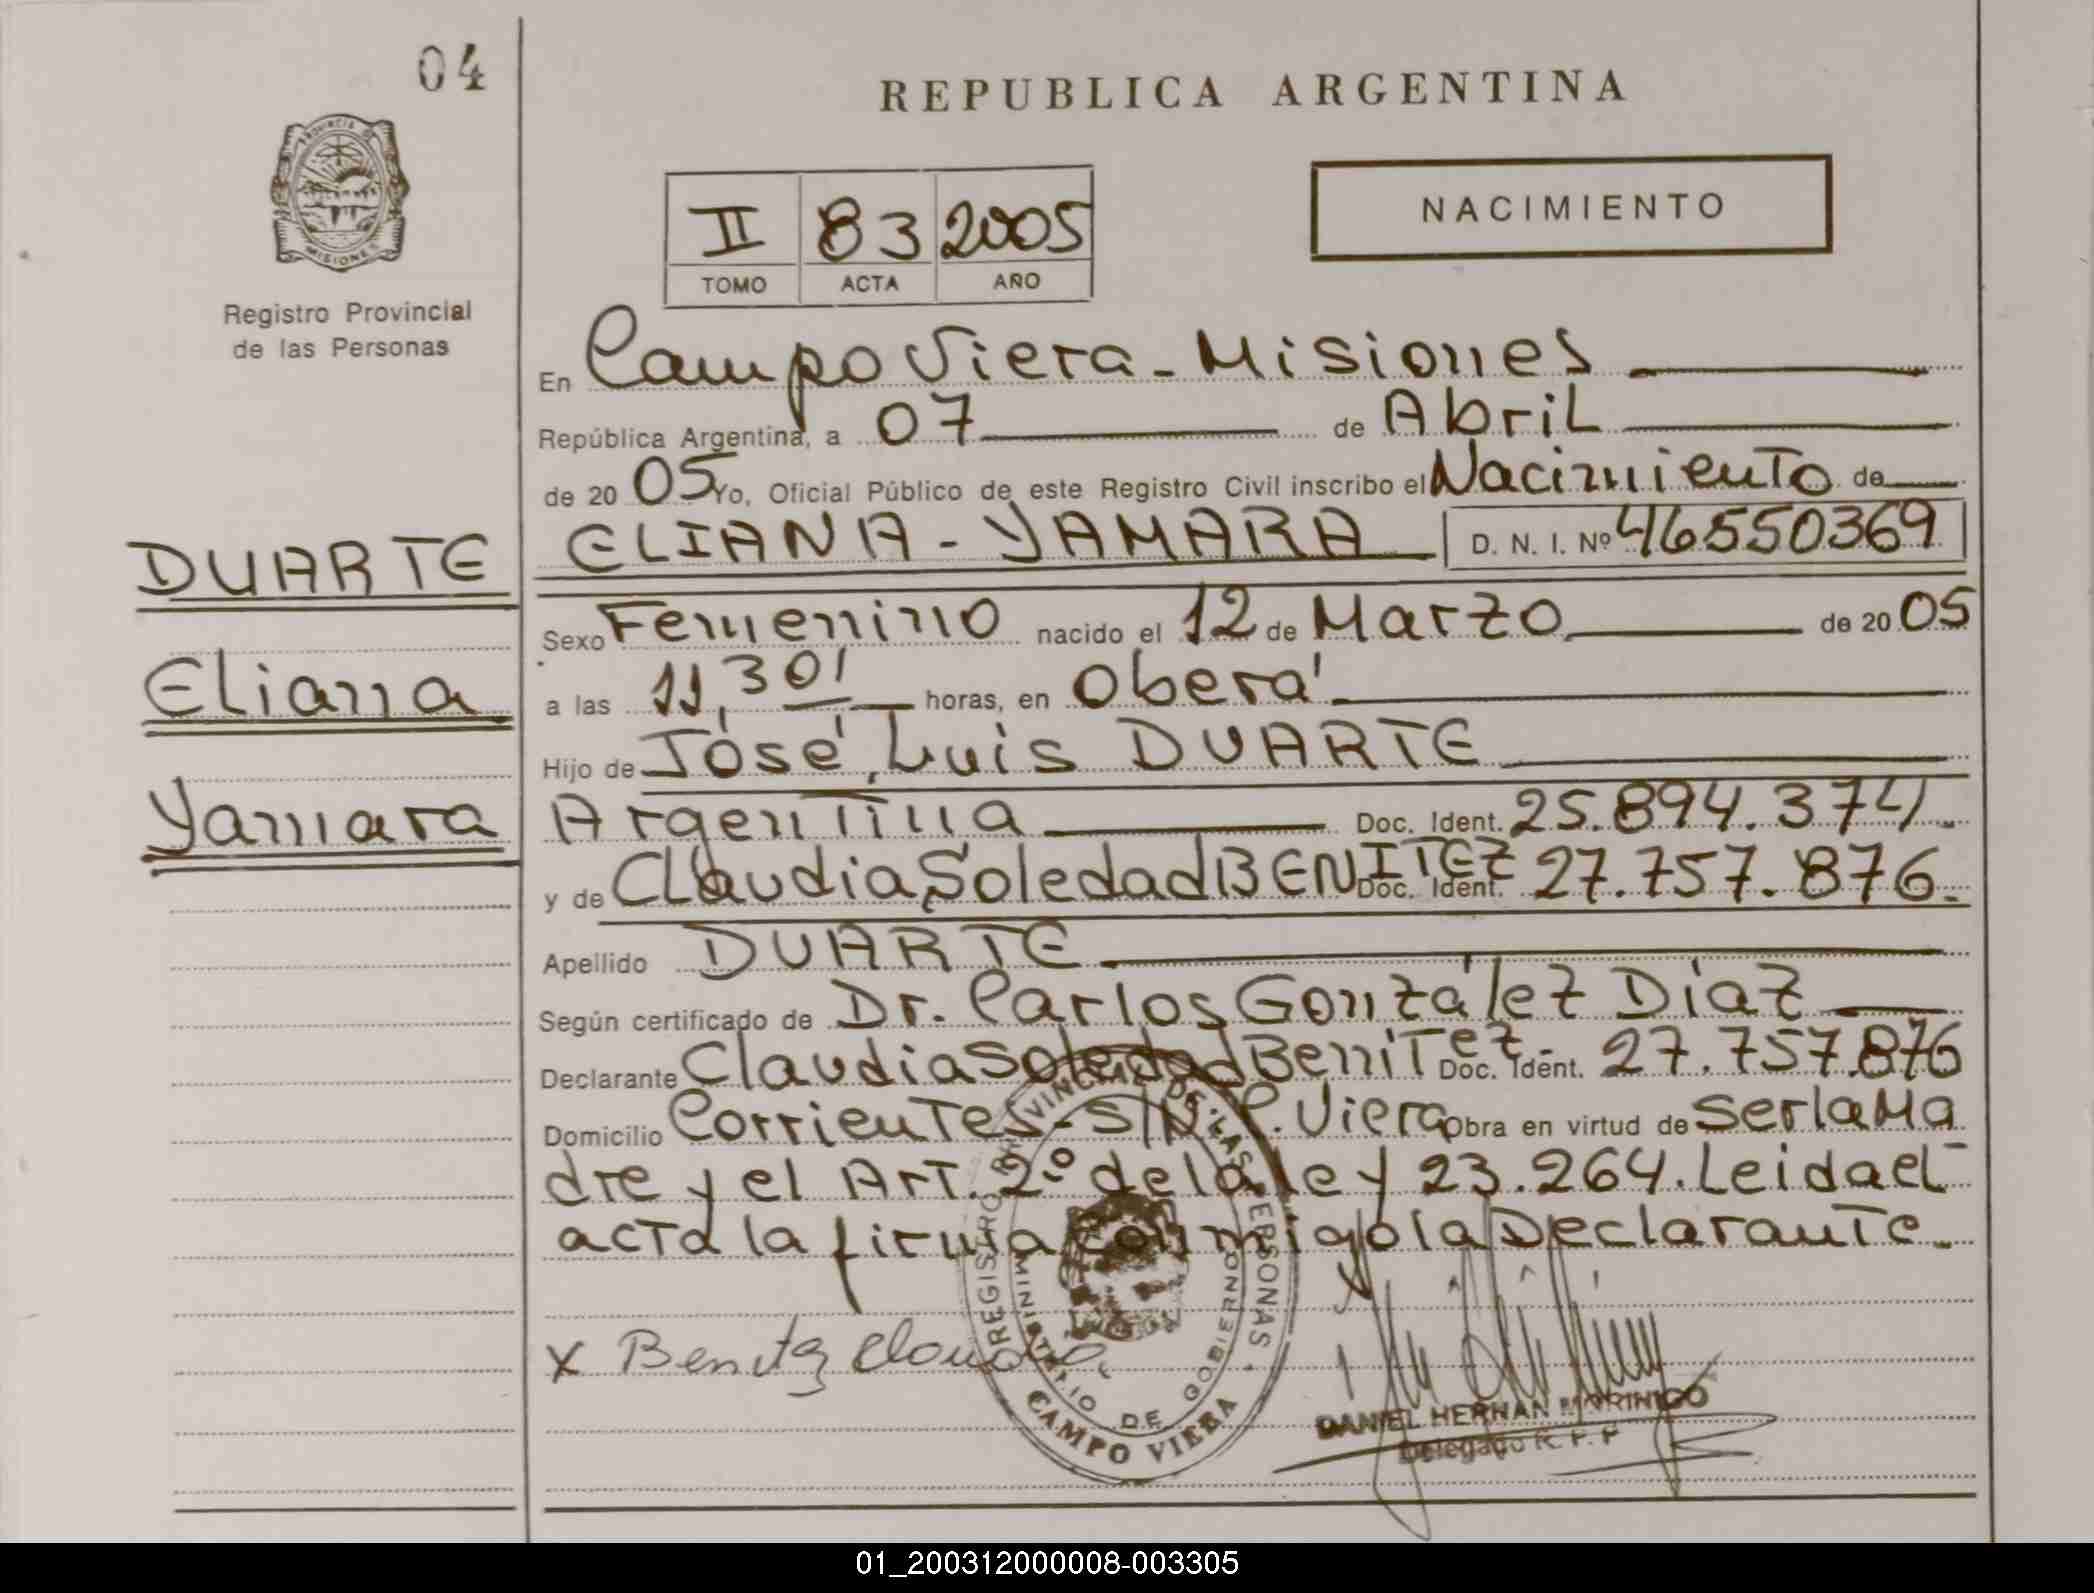 04
REPUBLICA ARGENTINA
PROVINCIA DE
MISIONES
Registro Provincial
de las Personas
II 83 2005
TOMO ACTA AÑO
NACIMIENTO
En Campo Viera - Misiones
República Argentina, a 07 de Abril
de 20 05 Yo, Oficial Público de este Registro Civil inscribo el Nacimiento de
DUARTE
ELIANA - YAMARA D. N. I. Nº 46550369
Sexo Femenino nacido el 12 de Marzo de 20 05
Eliana
a las 11,30' horas, en Oberá
Hijo de José, Luis DUARTE
Yamara
Argentina Doc. Ident. 25.894.374
y de Claudia, Soledad BENITEZ Doc. Ident. 27.757.876.
Apellido DUARTE
Según certificado de Dr. Carlos González Díaz
Declarante Claudia Soledad Benitez - Doc. Ident. 27.757.876
Domicilio Corrientes - S/N. C. Viera Obra en virtud de ser la Ma
dre y el Art. 2º de la ley 23.264. Leida el
acta la firma conmigo la Declarante.
X Benitez Claudia
REGISTRO PROVINCIAL DE LAS PERSONAS
MINISTERIO DE GOBIERNO
CAMPO VIERA
DANIEL HERNAN MORINIGO
Delegado R. P. P
01_200312000008-003305